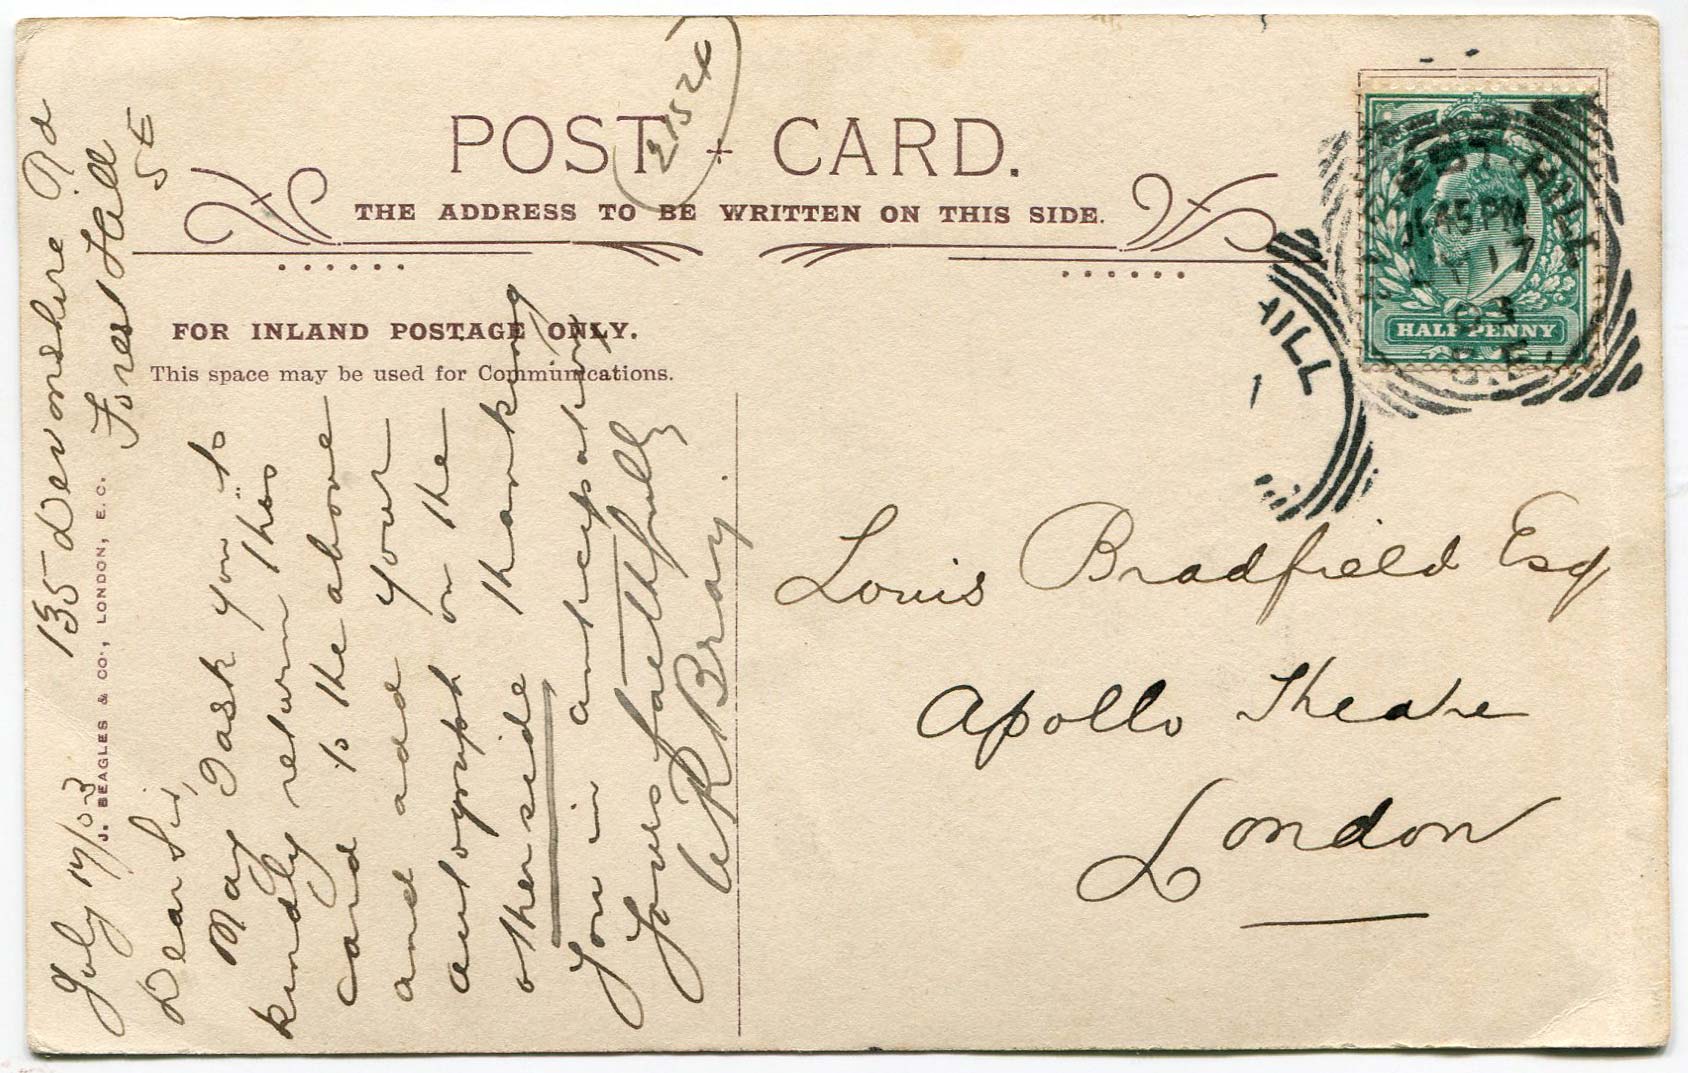 (21526)
POST CARD.
THE ADDRESS TO BE WRITTEN ON THIS SIDE.
FOR INLAND POSTAGE ONLY.
This space may be used for Communications.
J. BEAGLES & CO., LONDON, E.C.
135 Devonshire Rd
Forest Hill
S E
July 17/03
Dear Sir,
May I ask you to
kindly return this
card to the above
and add your
autograph on the
other side thanking
You in anticipation,
Yours faithfully
Bray.
Louis Bradfield Esq
Apollo Theatre
London
FOREST HILL
1.45 PM
JY 17
03
S.E.
HALF PENNY
HILL
1